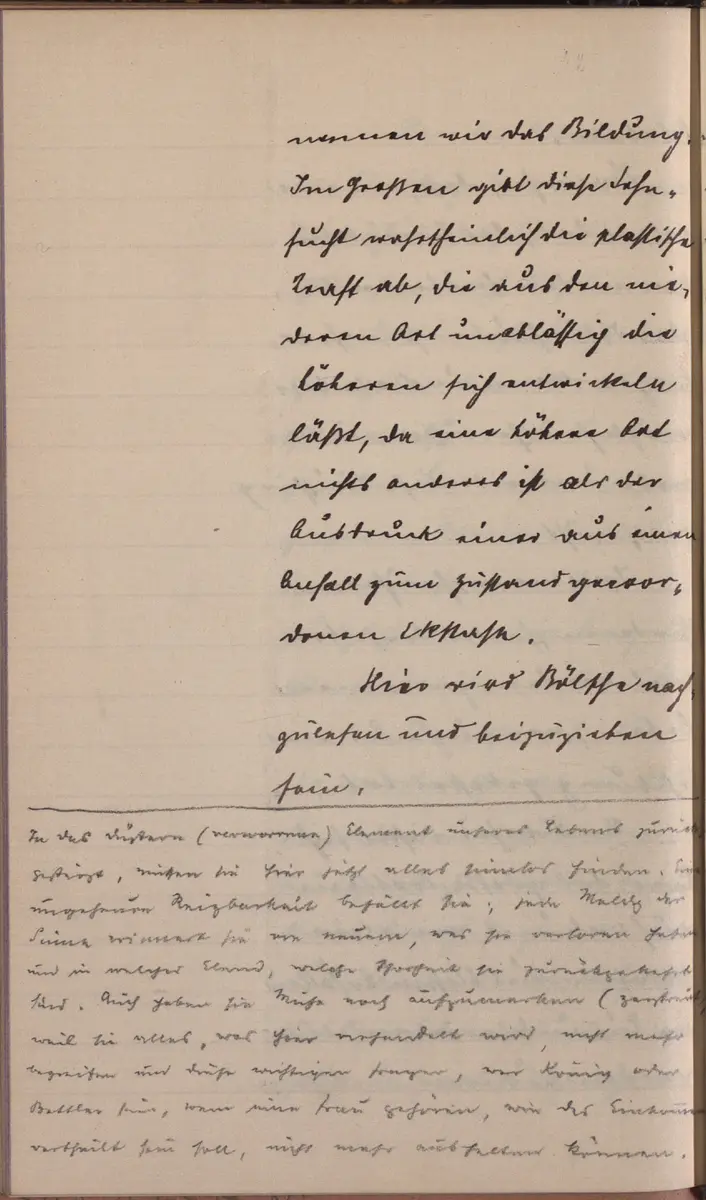 nennen wir das Bildung.
Im Großen gibt diese Sehn-
sucht wahrscheinlich die plastische
Kraft ab, die aus den nie-
deren Art unablässig die
höheren sich entwickeln
läßt, da eine höhere Art
nichts anderes ist als der
Ausdruck einer aus einem
Anfall zum Zustand gewor-
denen Ekstase.
Hier wird Bölsche nach-
zulesen und beizuziehen
sein.
In das düstern (verworrene) Element unseres Lebens zurück
gestürzt, müssen sie hier jetzt alles sinnlos finden. Eine
ungeheure Reizbarkeit befällt sie; jede Meldg der
Sinne erinnert sie von neuem, was sie verloren haben
und in welches Elend, welche Thorheit sie zurückgekehrt
sind. Auch haben sie Mühe noch aufzumerken (zerstreut)
weil sie alles, was hier verhandelt wird, nicht mehr
begreifen und diese wichtigen Fragen, wer König oder
Bettler sei, wem eine Frau gehören, wie das Einkommen
vertheilt sein soll, nicht mehr aushalten können.